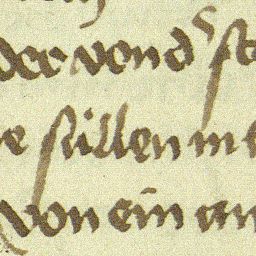 der von d
e süllen in
von ein an